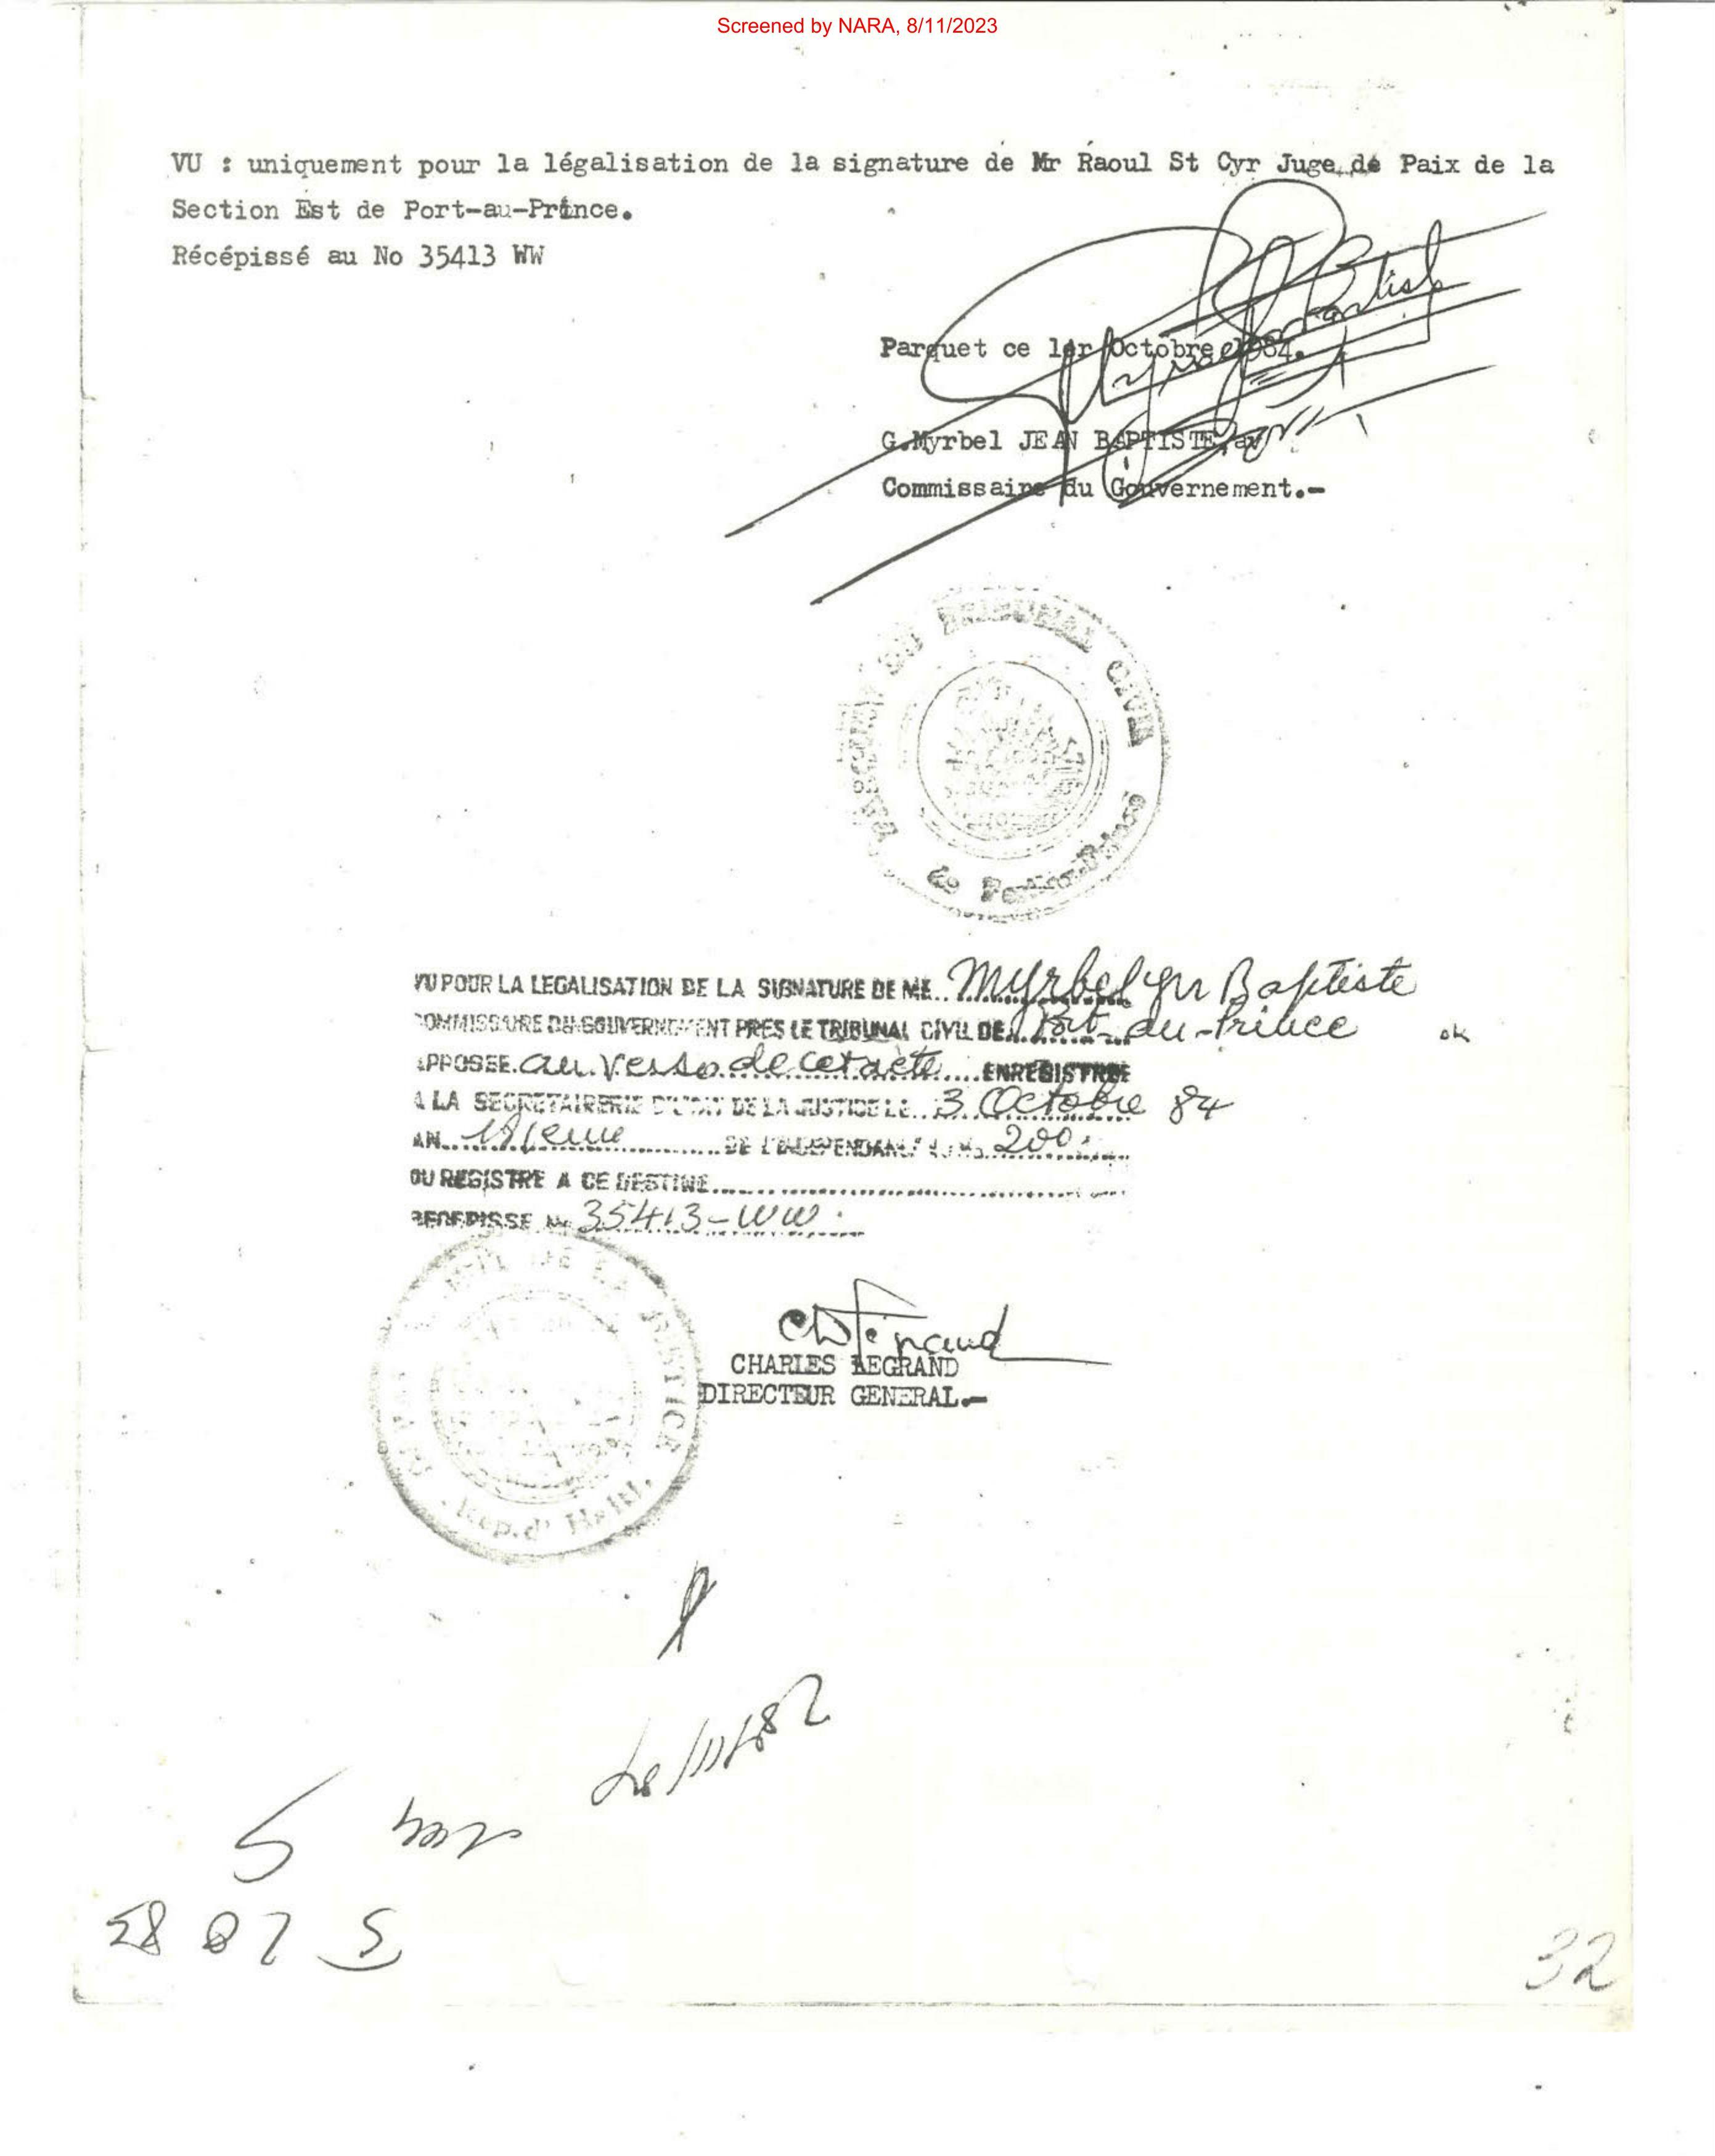 Screened by NARA, 8/11/2023
VU : uniquement pour la légalisation de la signature de Mr Raoul St Cyr Juge de Paix de la
Section Est de Port-au-Prince.
Récépissé au No 35413 WW
Parquet ce 1er Octobre 1984.
G.Myrbel JEAN BAPTISTE, av
Commissaire du Gouvernement.-
TRIBUNAL CIVIL
de Port-au-Prince
VU POUR LA LEGALISATION DE LA SIGNATURE DE ME. Myrbel Jn Baptiste
COMMISSAIRE DU GOUVERNEMENT PRES LE TRIBUNAL CIVIL DE Port-au-Prince ok
APPOSEE au verso de cet acte ENREGISTREE
A LA SECRETAIRERIE D'ETAT DE LA JUSTICE LE 3 Octobre 84
AN 181eme DE L'INDEPENDANCE 200
DU REGISTRE A CE DESTINE
RECEPISSE No 35413-WW.
DE LA JUSTICE
Rep. d' Haiti.
CHARLES LEGRAND
DIRECTEUR GENERAL.-
32